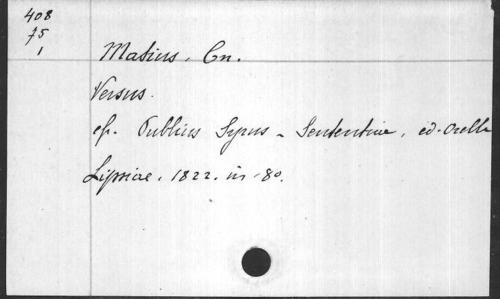 408
75
1
Matius, Cn.
Versus.
cf. Publius Syrus - Sententiae, ed. Orelli
Lipsiae, 1822. in -8o.